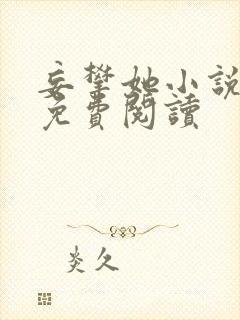 妄攀她小說
免費閱讀
炎久